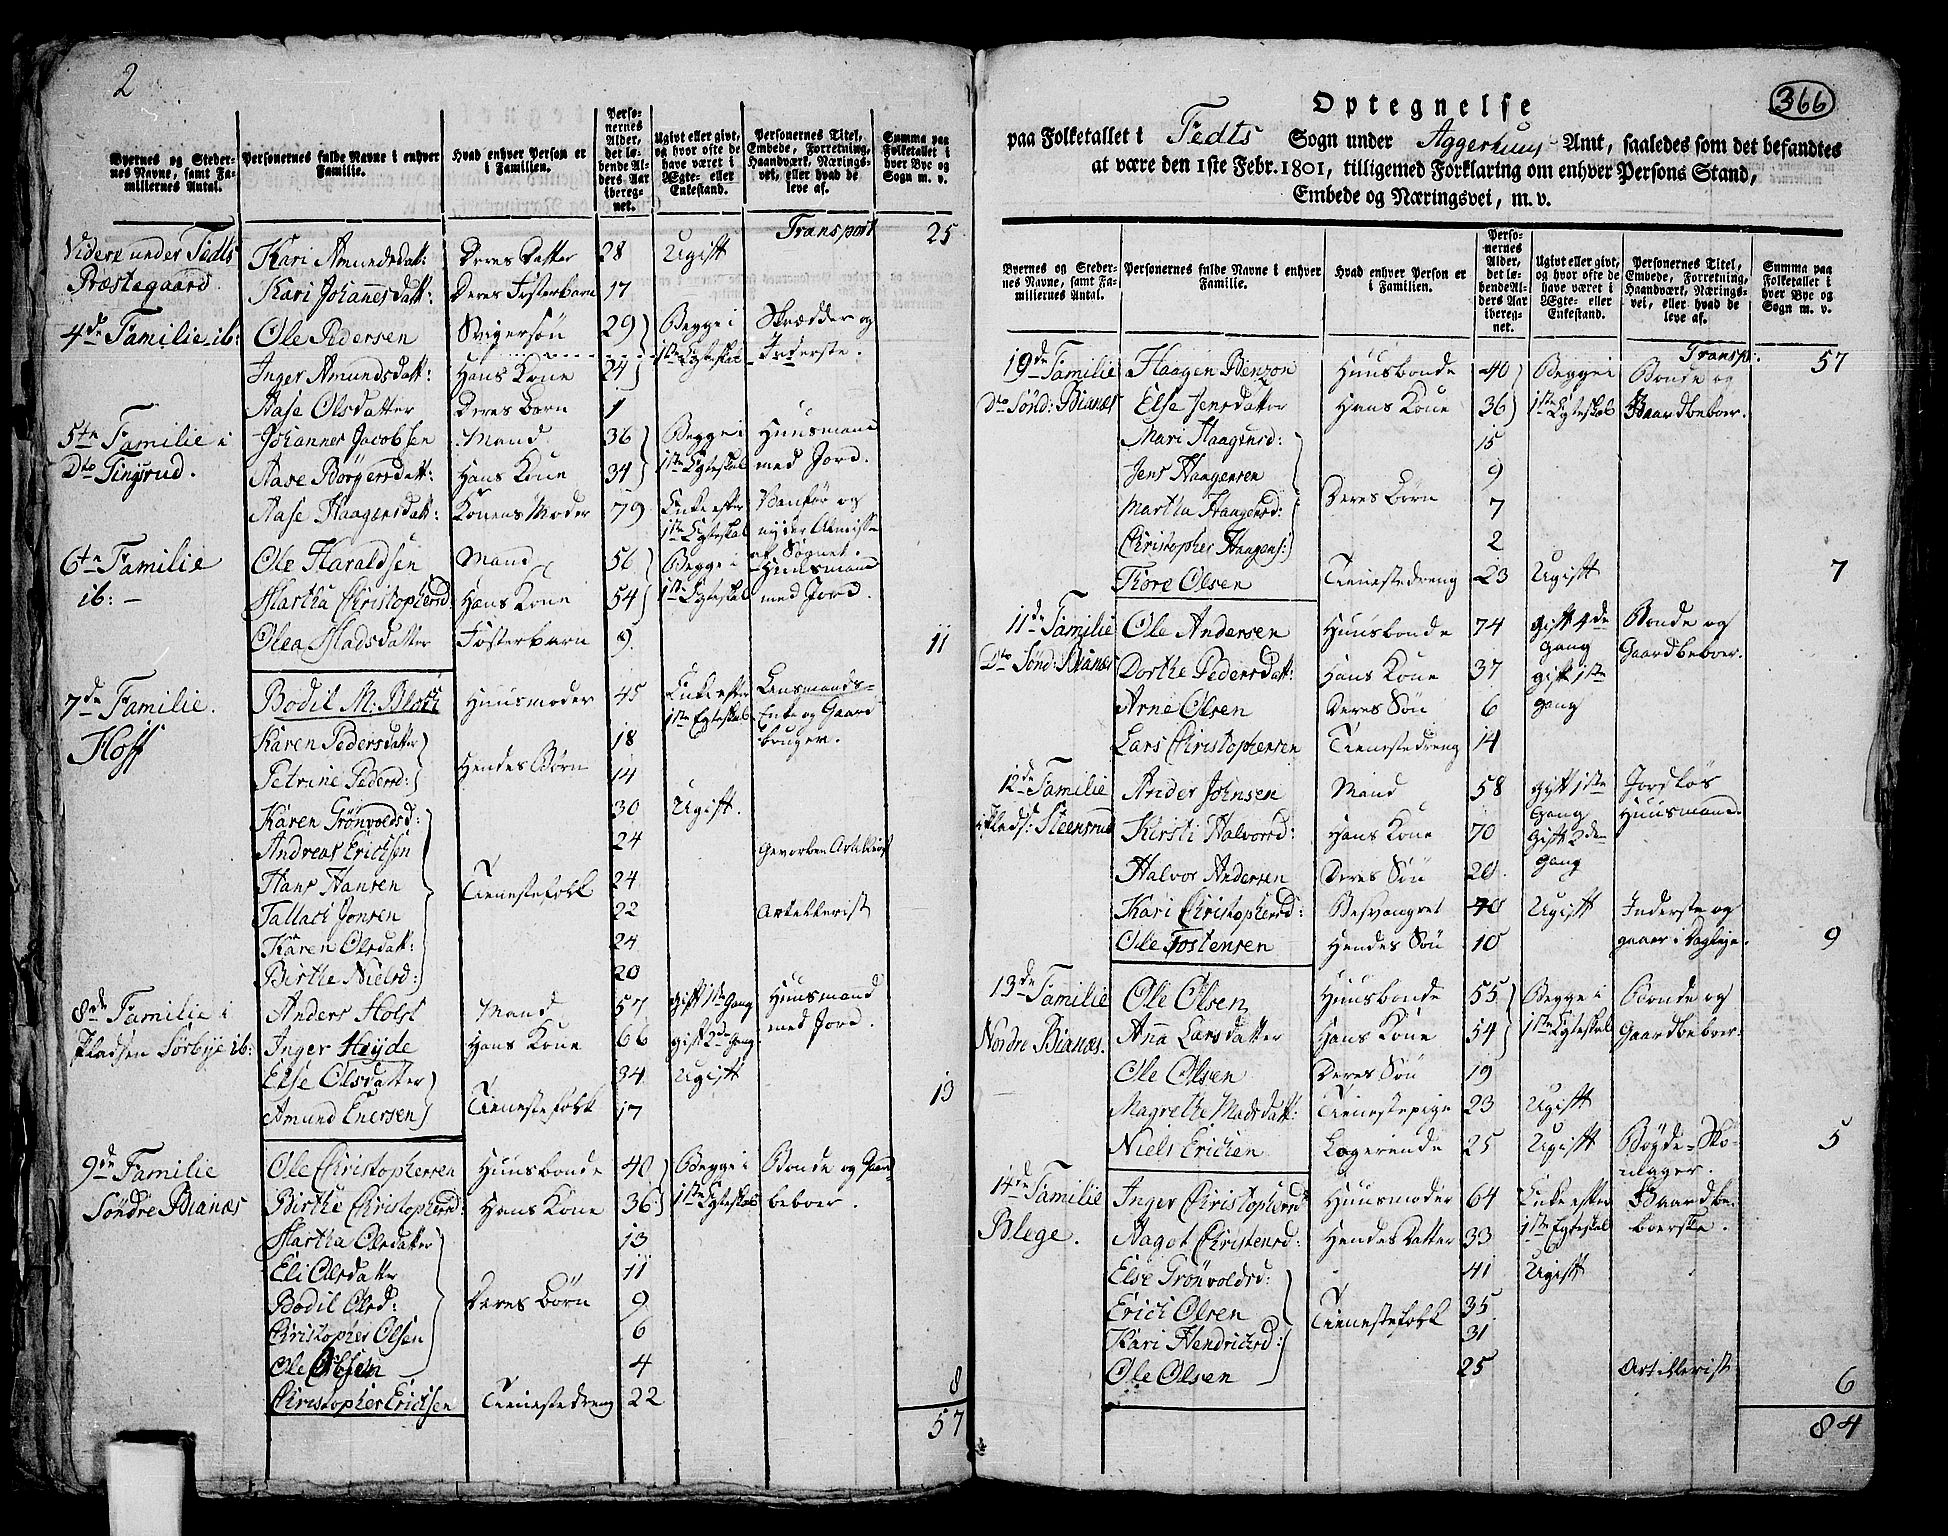 2
Byernes og Steder-
nes Navne, samt Fa-
miliernes Antal.
Personernes fulde Navne i enhver
Familie.
Hvad enhver Person er
i Familien.
Perso-
nernes
Alder,
det lø-
bende Al-
ders Aar
ibereg-
net.
Ugivt eller givt,
og hvor ofte de
have været i
Ægte- eller
Enkestand.
Personernes Titel,
Embede, Forretning,
Haandværk, Nærings-
vei, eller hvad de
leve af.
Summa paa
Folketallet i
hver Bye og
Sogn m. v.
Transport 25
Videre under Fedts Kari Amundsdatt: Deres Datter 28 Ugift
Præstegaard. Kari Johannesdatt: Deres Fosterbarn 17
4de Familie ib: Ole Pedersen Svigersøn 29 Begge i Skrædder og
1ste Egteskab Inderste.
Inger Amundsdatt: Hans Kone 24
Aase Olsdatter Deres Barn 1
5te Familie i Johannes Jacobsen Mand 36 Begge i Huusmand
Dto Tingsrud. Aase Børgersdatt: Hans Kone 34 1ste Egteskab med Jord.
Aase Haagensdatt: Konens Moder 79 Enke efter Vanfør og
1ste Egteskab nyder Almisse
af Sognet.
6te Familie Ole Haraldsen Mand 56 Begge i Huusmand
ib: Martha Christophersd: Hans Kone 54 1ste Egteskab med Jord.
Olea Madsdatter Fosterbarn 9 11
7de Familie. Bodil M: Bloch Huusmoder 45 Enke efter Lensmands-
1ste Egteskab Enke og Gaard
bruger.
Hoff Karen Pedersdatter 18
Hendes Børn
Petrine Pedersd: 14
Karen Grønvoldsd: 30 Ugift.
Andreas Erichsen 24 Gevorben Artillerist
Hans Hansen Tienestefolk 24
Tallach Jonsen 22 Artillerist
Karen Olsdatt: 24
Birthe Nielsd: 20
8de Familie i Anders Holst Mand 57 gift 1ste Gang Huusmand
Pladsen Sørbye ib: Inger Heyde Hans Kone 66 gift 2de Gang med Jord.
Else Olsdatter 34 Ugift
Tienestefolk 13
Amund Enersen 17
9de Familie Ole Christophersen Huusbonde 40 Begge i Bonde og Gaard
Søndre Bianæs Birthe Christophersd: Hans Kone 36 1ste Egteskab beboer.
Martha Olsdatter 13
Eli Olsdatter 11
Bodil Olsd: Deres Børn 9
Christopher Olsen 6
Ole Olsen 4
Christopher Erichsen Tienestedreng 22 8
57
366
Optegnelse
paa Folketallet i Fedts Sogn under Aggerhuus Amt, saaledes som det befandtes
at være den 1ste Febr. 1801, tilligemed Forklaring om enhver Persons Stand,
Embede og Næringsvei, m. v.
Byernes og Steder-
nes Navne, samt Fa-
miliernes Antal.
Personernes fulde Navne i enhver
Familie.
Hvad enhver Person er
i Familien.
Perso-
nernes
Alder,
det lø-
bende Al-
ders Aar
ibereg-
net.
Ugivt eller givt,
og hvor ofte de
have været i
Ægte- eller
Enkestand.
Personernes Titel,
Embede, Forretning,
Haandværk, Nærings-
vei, eller hvad de
leve af.
Summa paa
Folketallet i
hver Bye og
Sogn m. v.
Transp: 57
10de Familie Haagen Benzon Huusbonde 40 Begge i Bonde og
Dto Sønd: Bianæs Else Jensdatter Hans Kone 36 1ste Egteskab Gaardbeboer.
Mari Haagensd: 15
Jens Haagensen 9
Deres Børn
Martha Haagensd: 7
Christopher Haagens: 2
Tore Olsen Tienestedreng 23 Ugift 7
11de Familie Ole Andersen Huusbonde 74 gift 4de Bonde og
gang Gaardbeboer.
Dto Sønd: Bianæs Dorthe Pedersdatt: Hans Kone 37 gift 1ste
gang
Arne Olsen Deres Søn 6
Lars Christophersen Tienestedreng 14
12de Familie Ander Johnsen Mand 58 gift 1ste Jordløs
Gang Huusmand
i Plads: Steensrud Kirsti Halvorsd: Hans Kone 70 Gift 2den
Gang
Halvor Andersen Deres Søn 20
Kari Christophersd: Besvangret 40 Ugift Inderste og
Ole Tostensen Hendes Søn 10 gaaer i Dagleje. 9
13de Familie Ole Olsen Huusbonde 55 Begge i Bonde og
Nordre Bianæs. Anna Larsdatter Hans Kone 54 1ste Egteskab Gaardbeboer.
Ole Olsen Deres Søn 19
Magrethe Madsdatt: Tienestepige 23 Ugift
Niels Erichen Logerende 25 Ugift Bøyde-Sko- 5
mager.
14de Familie Inger Christophersd: Huusmoder 64 Enke efter Gaardbe-
Blege. Aagot Christensd: Hendes Datter 33 1ste Egteskab boerske.
Else Grønvoldsd: 41 Ugift
Erich Olsen Tienestefolk 35
Kari Hendrichsd: 31
Ole Olsen 25 Artillerist
6
84